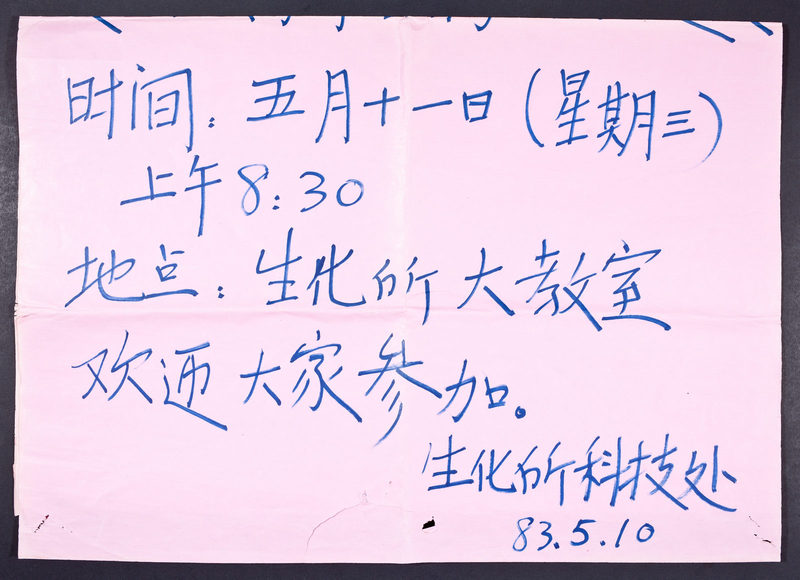 时间：五月十一日（星期三）
上午8:30
地点：生化所大教室
欢迎大家参加。
生化所科技处
83.5.10